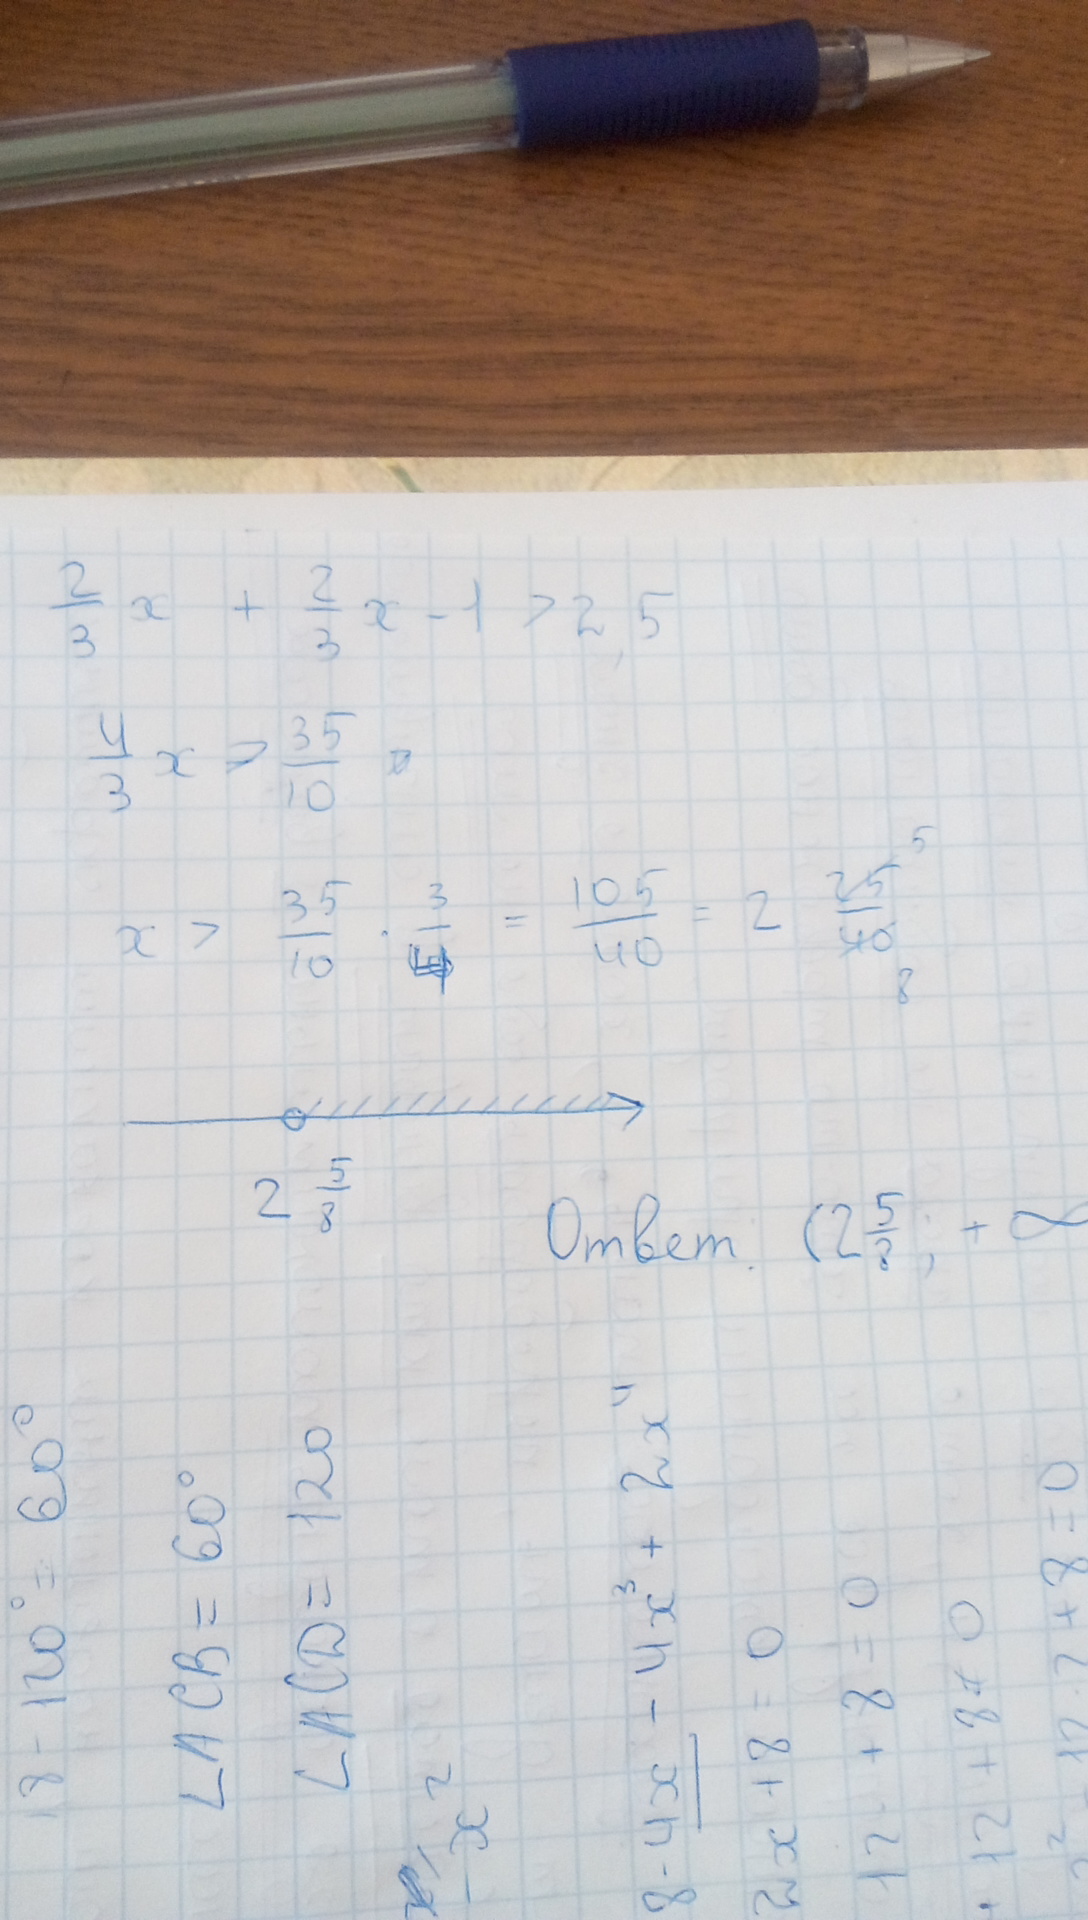 2/3 x + 2/3 x - 1 > 2,5
4/3 x > 35/10
x > 35/10 · 3/4 = 105/40 = 2 25/40 5 8
2 5/8
Ответ. (2 5/8; + ∞
18 - 120° = 60°
∠ACB = 60°
∠ACD = 120
x²
8 - 4x - 4x³ + 2x⁴
2x + 8 = 0
12 + 8 = 0
12 + 8 = 0
12 · 2 + 8 = 0